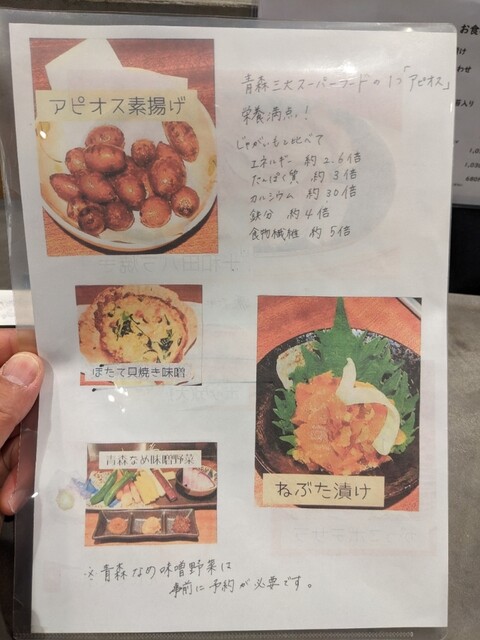 青森三大スーパーフードの1つ「アピオス」
栄養満点！
じゃがいもと比べて
エネルギー 約2.6倍
たんぱく質 約3倍
カルシウム 約30倍
鉄分 約4倍
食物繊維 約5倍
アピオス素揚げ
ほたて貝焼き味噌
ねぶた漬け
青森なめ味噌野菜
※青森なめ味噌野菜は
事前に予約が必要です。
お食